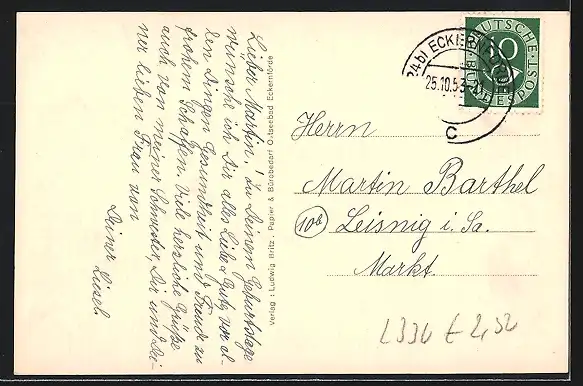 Lieber Martin! Zu Deinem Geburtstage
wünsche ich Dir alles Liebe u. Gute, vor al-
len Dingen Gesundheit und Freude zu
frohem Schaffen. Viele herzliche Grüße
auch von meiner Schwester, Dir und Dei-
ner lieben Frau von
Deiner
Liesel.
Verlag: Ludwig Britz, Papier & Bürobedarf Ostseebad Eckernförde
(24b) ECKERNFÖRDE
25.10.53
C
DEUTSCHE POST
BUNDESPOST
10
Herrn
Martin Barthel
10b Leisnig i. Sa.
Markt.
L336 E 2,52